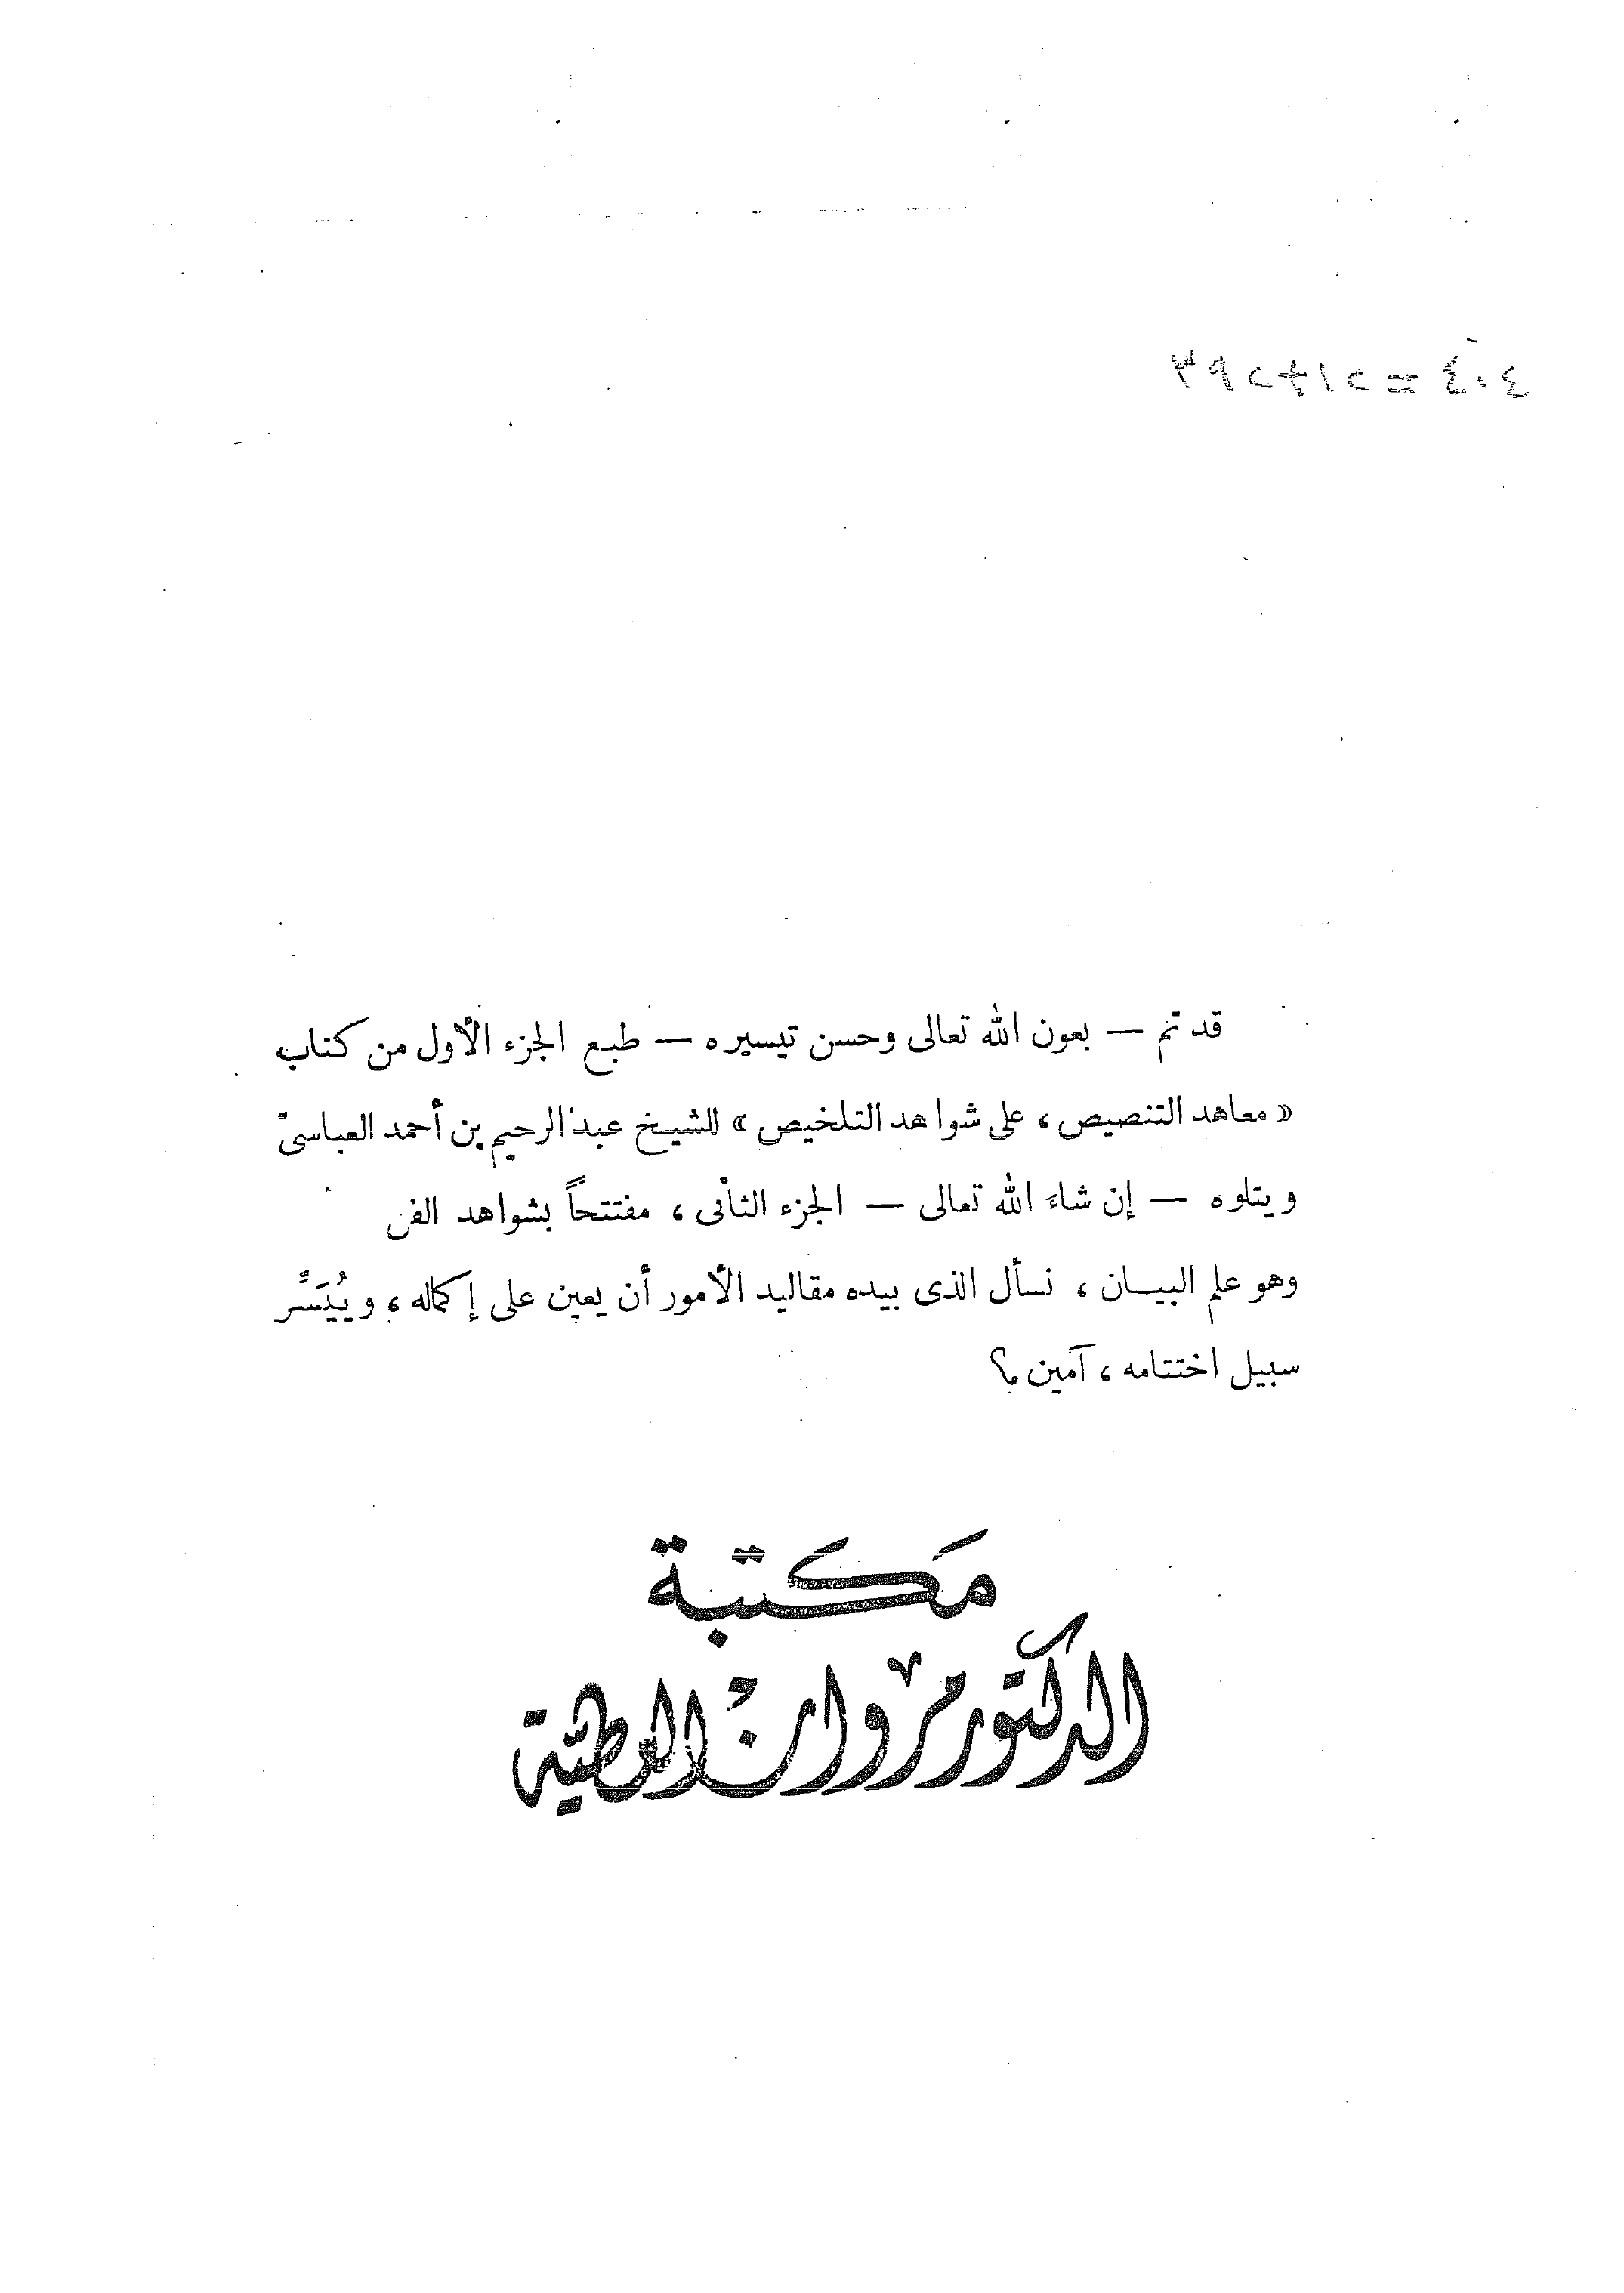 ٣٩٢+١٢=٤٠٤
قد تم — بعون الله تعالى وحسن تيسيره — طبع الجزء الأول من كتاب
« معاهد التنصيص ، على شواهد التلخيص » للشيخ عبد الرحيم بن أحمد العباسىّ
ويتلوه — إن شاءَ الله تعالى — الجزء الثانى ، مفتتحاً بشواهد الفن
وهو علم البيـــان ، نسأل الذى بيده مقاليد الأمور أن يعين على إكماله ، ويُيَسِّر
سبيل اختتامه ، آمين ؟
مَكتبة
الدكتور مروان العطيّة